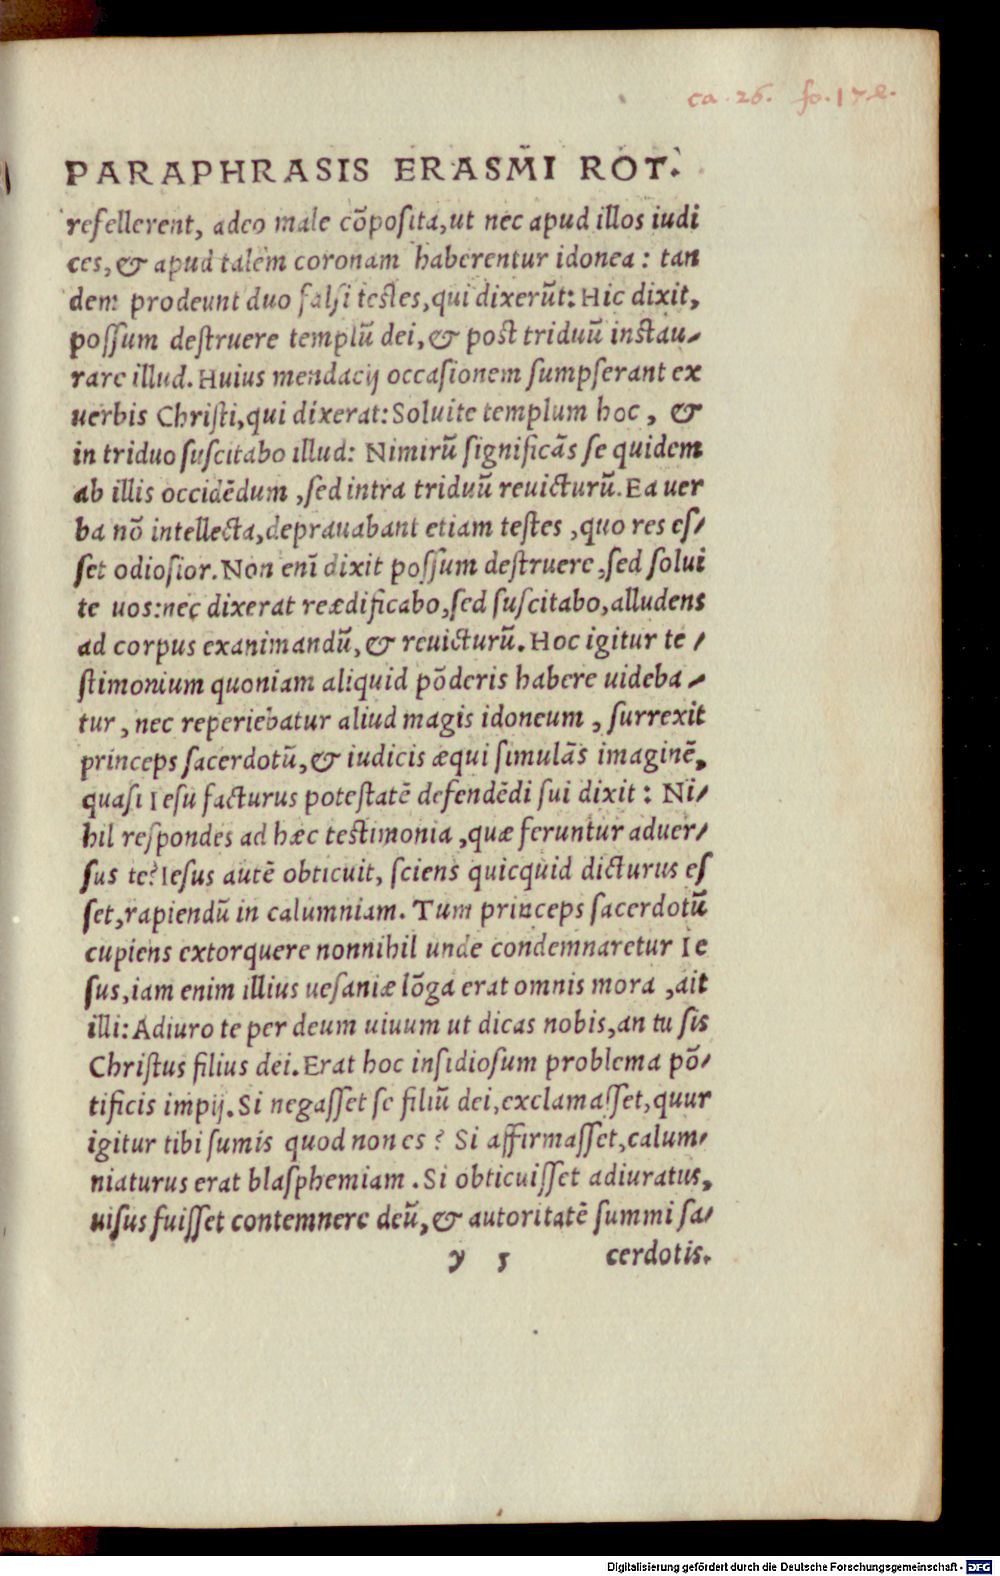 ca. 26. fo. 172.
PARAPHRASIS ERASMI ROT.
refellerent, adeo male cōposita, ut nec apud illos iudi
ces, & apud talem coronam haberentur idonea: tan
dem prodeunt duo falsi testes, qui dixerūt: Hic dixit,
possum destruere templū dei, & post triduū instau-
rare illud. Huius mendacij occasionem sumpserant ex
uerbis Christi, qui dixerat: Soluite templum hoc, &
in triduo suscitabo illud: Nimirū significās se quidem
ab illis occidēdum, sed intra triduū reuicturū. Ea uer
ba nō intellecta, deprauabant etiam testes, quo res es/
set odiosior. Non enī dixit possum destruere, sed solui
te uos: nec dixerat reædificabo, sed suscitabo, alludens
ad corpus exanimandū, & reuicturū. Hoc igitur te/
stimonium quoniam aliquid pōderis habere uideba-
tur, nec reperiebatur aliud magis idoneum, surrexit
princeps sacerdotū, & iudicis æqui simulās imaginē,
quasi Iesu facturus potestatē defendēdi sui dixit: Ni/
hil respondes ad hæc testimonia, quæ feruntur aduer/
sus te? Iesus autē obticuit, sciens quicquid dicturus es
set, rapiendū in calumniam. Tum princeps sacerdotū
cupiens extorquere nonnihil unde condemnaretur Ie
sus, iam enim illius uesaniæ lōga erat omnis mora, ait
illi: Adiuro te per deum uiuum ut dicas nobis, an tu sis
Christus filius dei. Erat hoc insidiosum problema pō/
tificis impij. Si negasset se filiū dei, exclamasset, quur
igitur tibi sumis quod non es? Si affirmasset, calum/
niaturus erat blasphemiam. Si obticuisset adiuratus,
uisus fuisset contemnere deū, & autoritatē summi sa/
y 5 cerdotis.
Digitalisierung gefördert durch die Deutsche Forschungsgemeinschaft - DFG